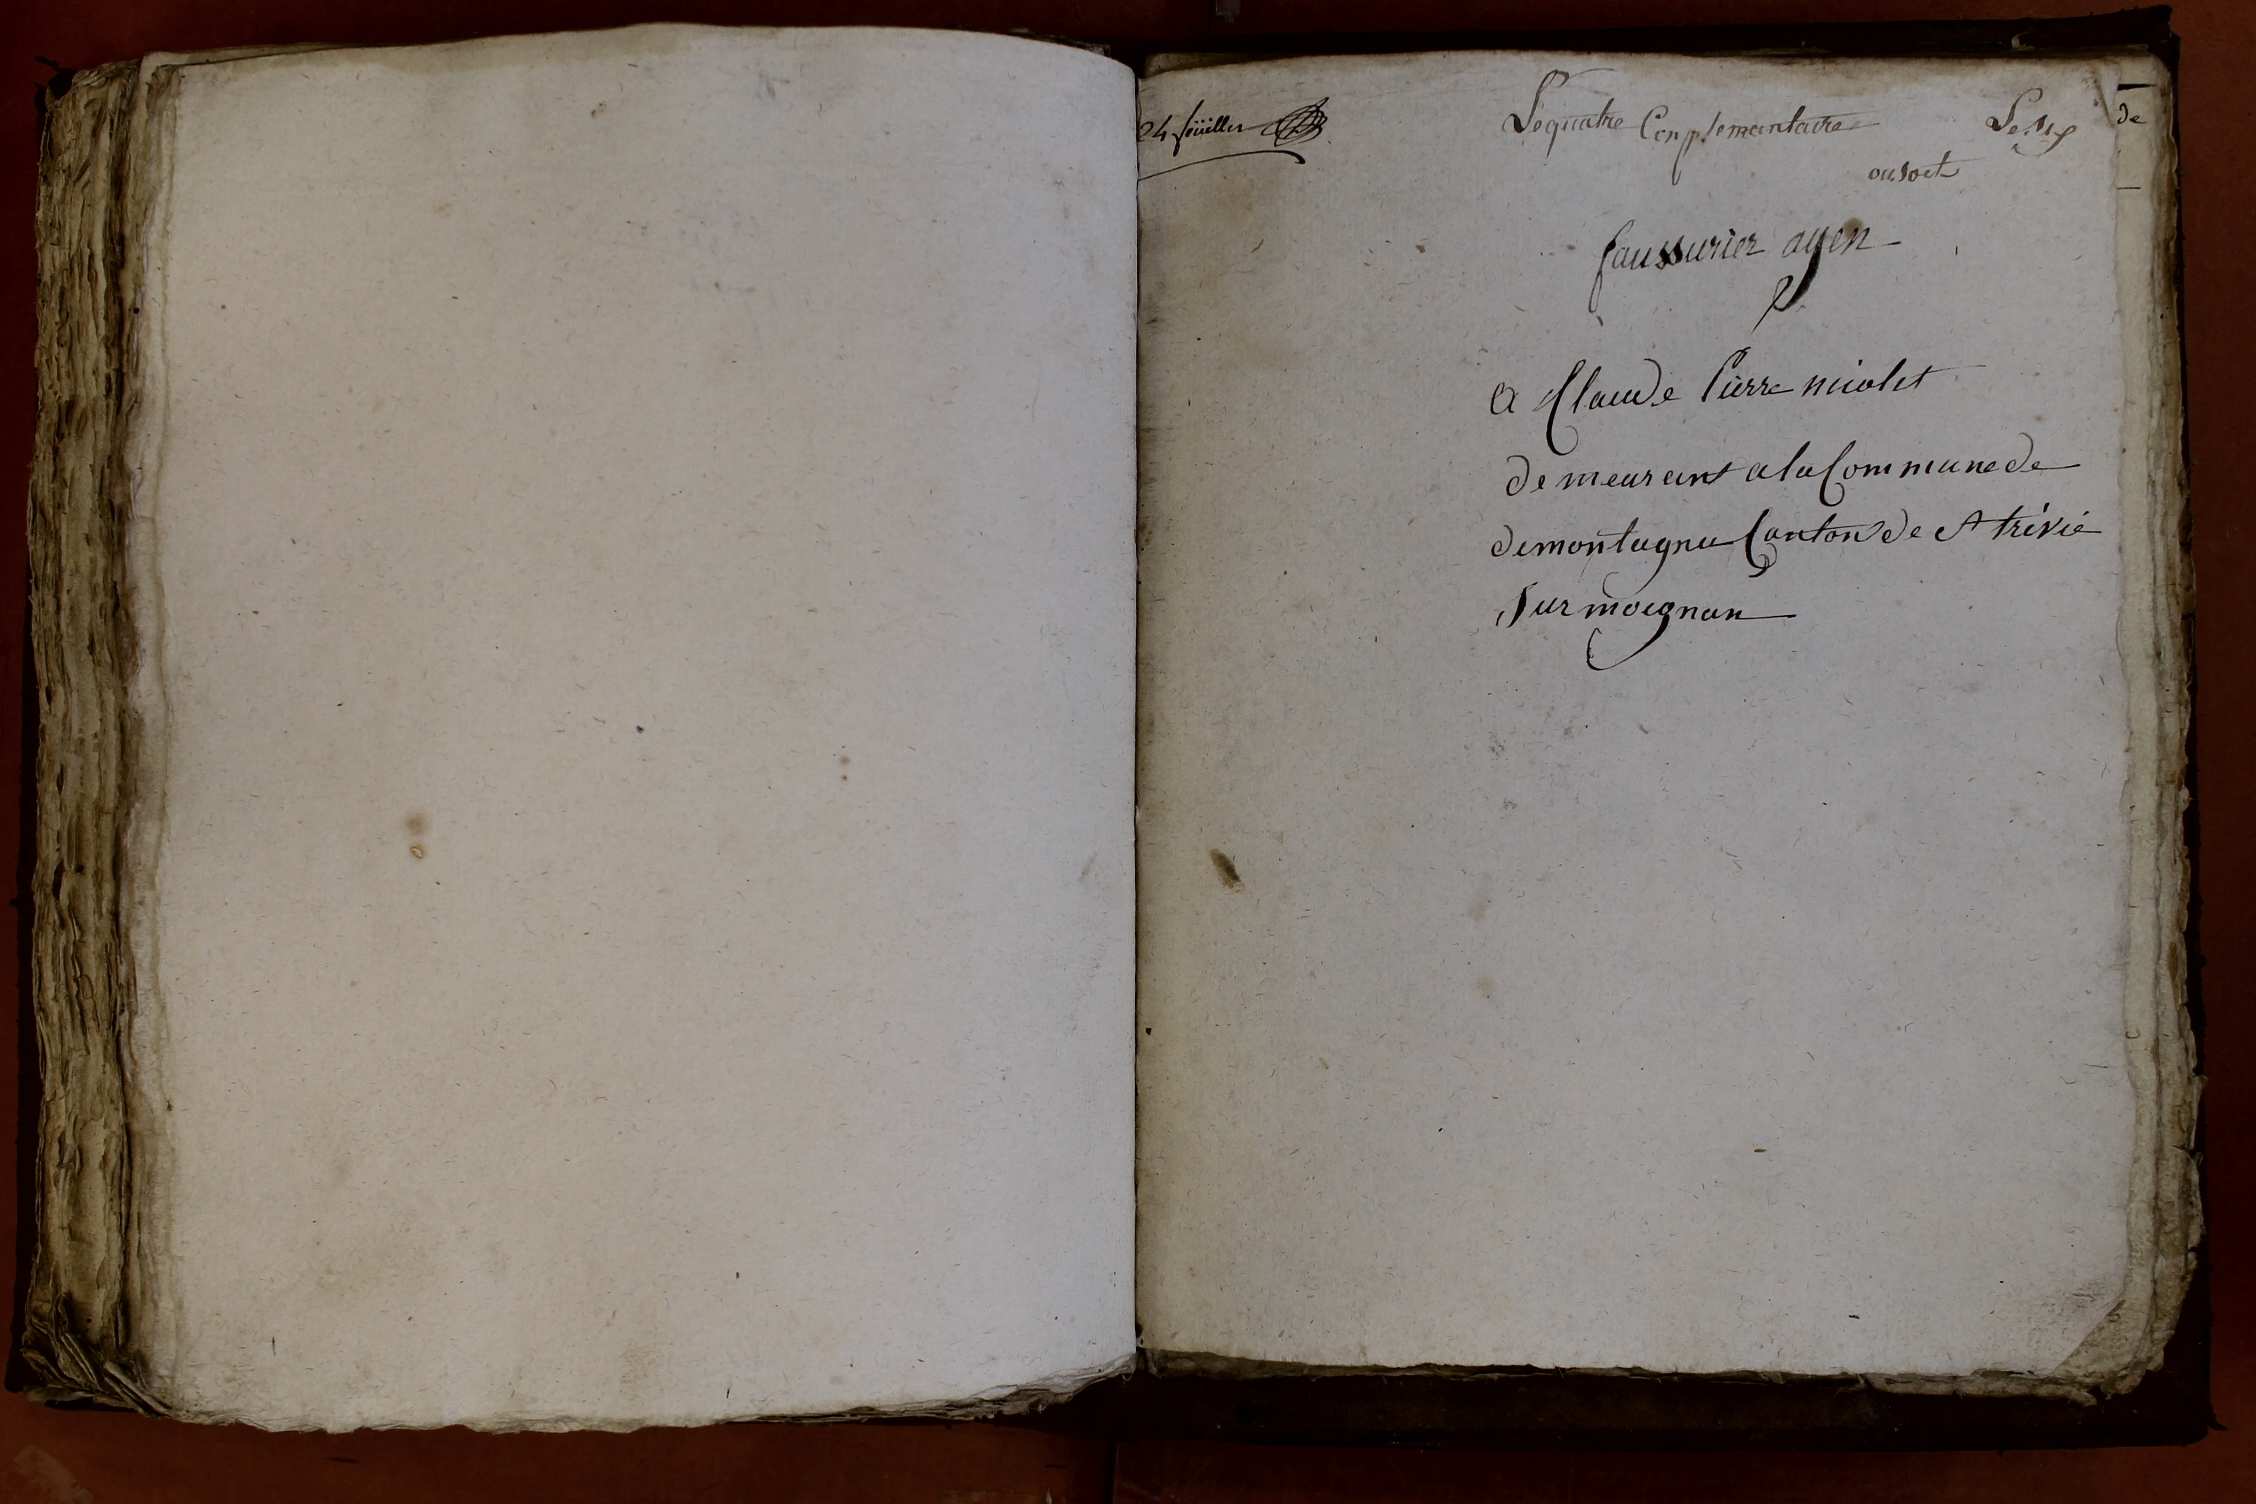 24 feüilles
Le quatre Conplementaire Le six
ou soit
faussurier agen
a Claude Pierre nicolet
demeurant a la Commune de
de montagna Canton de St trivié
Sur moignan
de